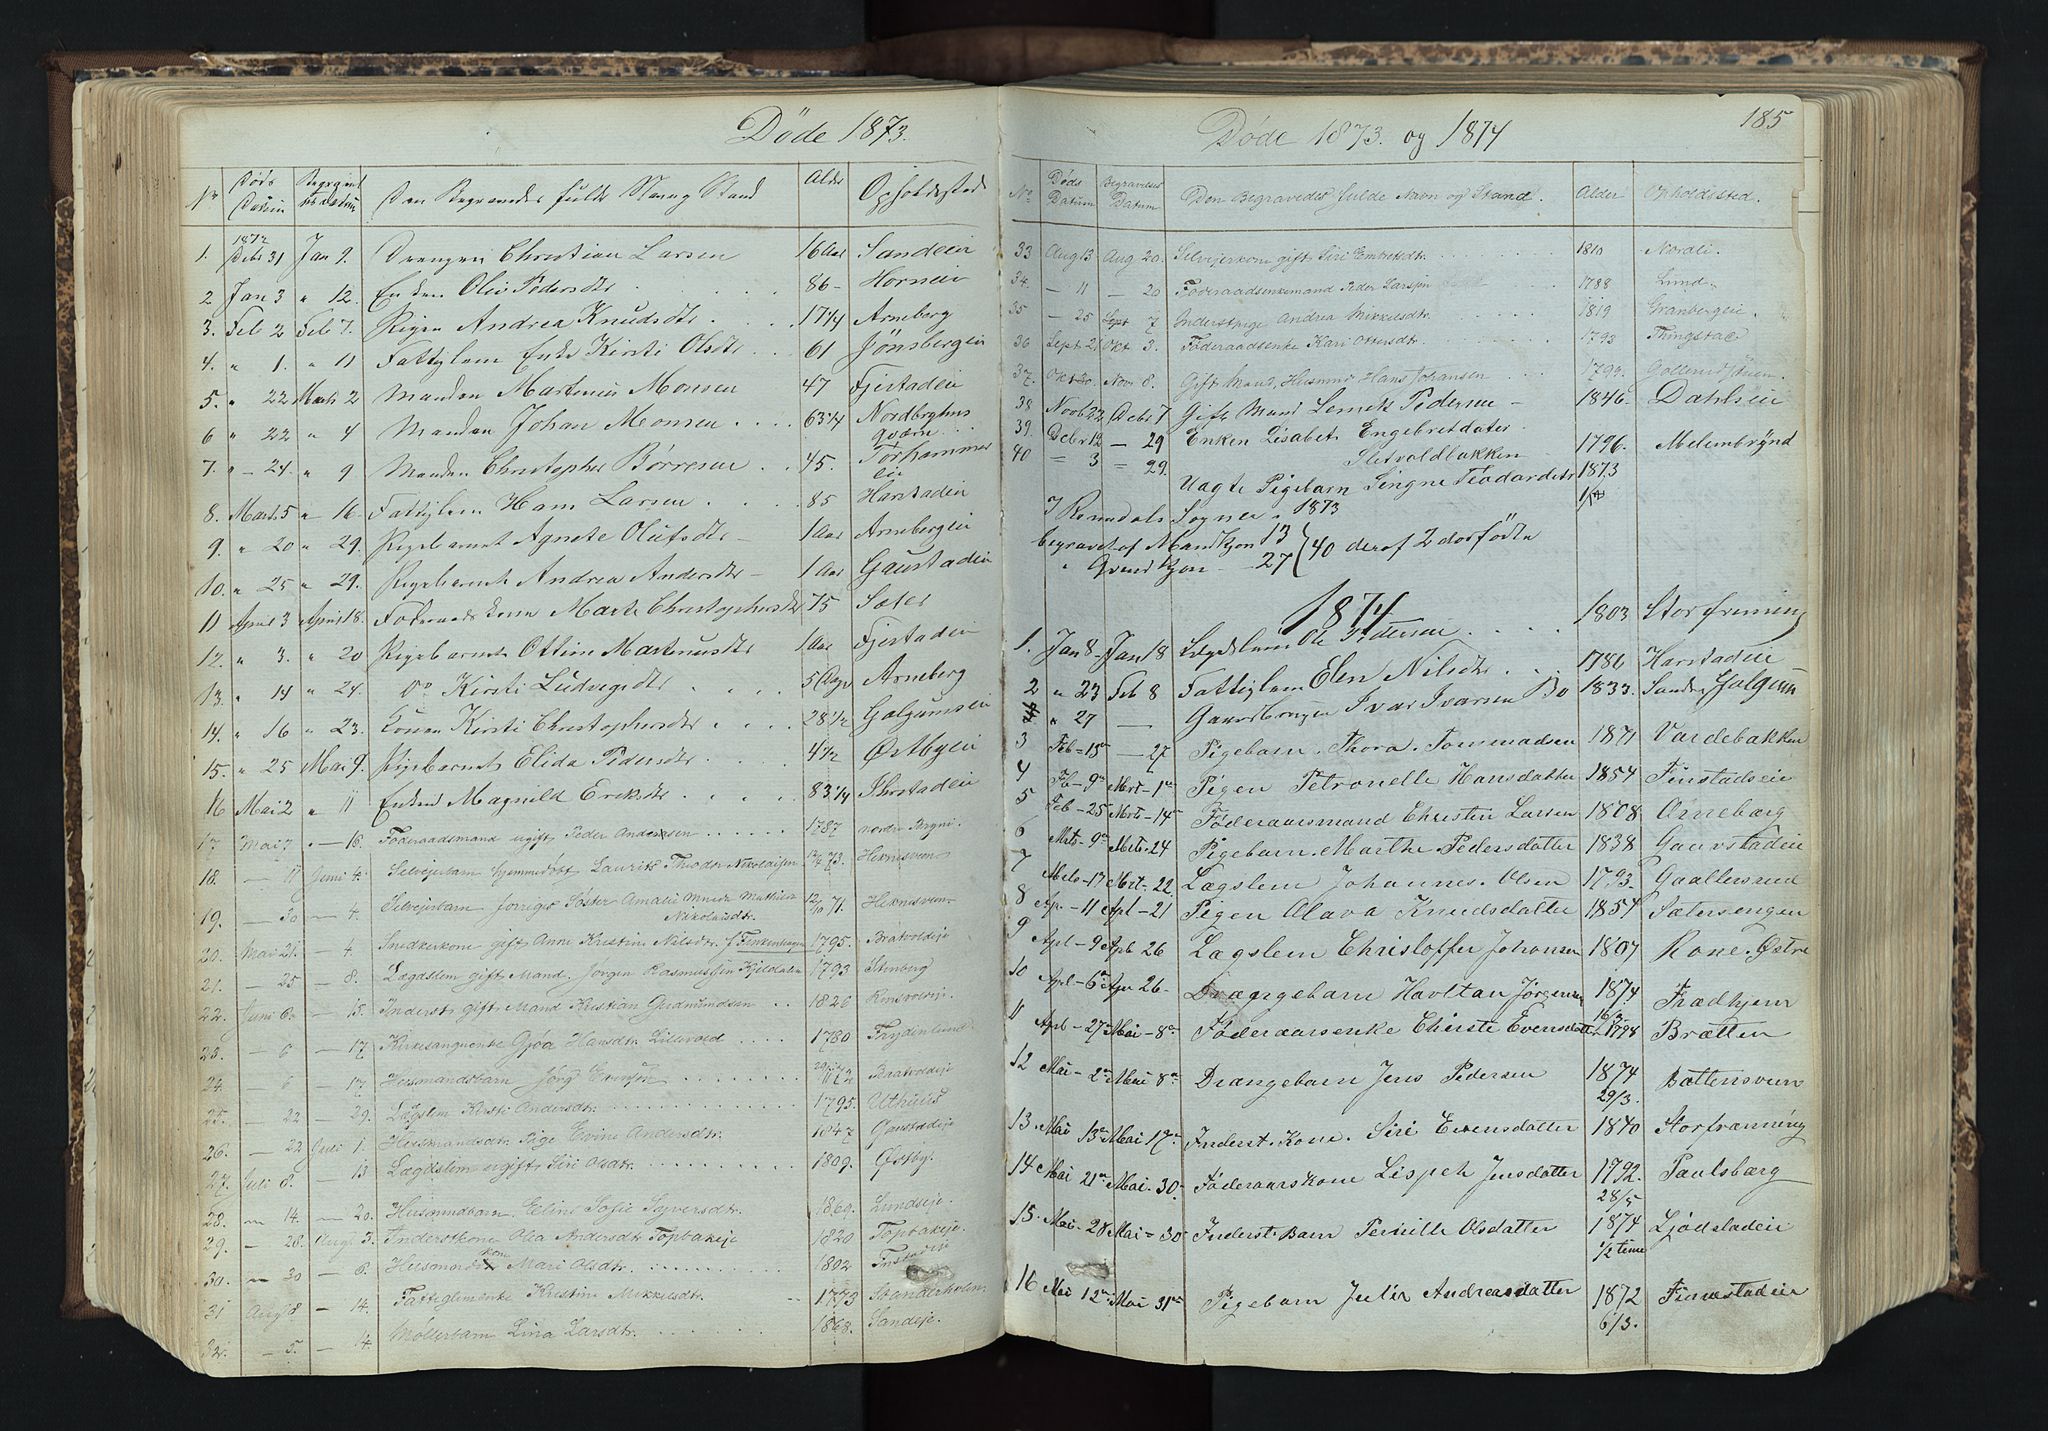 Døde 1873.
No Døds Datum Begravelses Datum Den Begravedes fulde Navn og Stand Alder Opholdssted
1. 1872 Debr 31 Jan 9. Drengen Christian Larsen 16 Aar Sandeiei
2 Jan 3 " 12. Enken Olia Pedersdtr 86 - Horneiei
3. Feb 2 Feb 7. Pigen Andrea Knudsdtr 17 1/4 Arneberg
4. " 1. " 11 Fattiglem Enke Kirsti Olsdtr 61 Jönsbergeie
5. " 22 Marts 2 Manden Martenius Monsen 47 Fjestadeie
6 " 22 " 4 Manden Johan Monsen 63 1/4 Nordbryhns qværn
7. " - 24. " 9 Manden Christopher Börresen 45. Torhammer eie
8. Marts 5 " - 16. Fattiglem Hans Larsen 85 Harstadeie
9. " 20 " 29. Pigebarnet Agnete Olufsdtr - 1 Aar Arnebergeie
10. " 25 " 29. Pigebarnet Andrea Andersdtr - 1 Aar Gaustadeie
11 April 3 April 18. Föderaadskone Marte Christophersdtr 75 Sæter
12. " 3. " 20 Pigebarnet Ottine Martenusdtr 1 Aar Fjestadeie
13. " 14 " 24. do Kirsti Ludvigsdtr 5 Dage Arneberg
14. " 16 " 23. Konen Kirsti Christophersdtr 28 1/2 Galgumseie
15. " 25 Mai 9. Pigebarnet Elida Pedersdtr 4 1/2 Østbyeie
16 Mai 2 " 11 Enken Magnild Eriksdtr 83 1/4
17 Mai 7 " - 16. Föderaadsmand ugift Peder Andersen 1787 nordre Bergni.
18. - 17 Juni 4. Selveierbarn hjemmedöbt Laurits Thodor Nikolaisen 73. Heknisveen
19. - 30 - 4. Selveierbarn forriges Söster Amalie Mathea Nikolaisdtr. 12/10 71. Heknisveen
20. Mai 21. - 4. Snedkerkone gift Anne Kristine Nilsdtr. f. Finkenhagen 1795. Bratvoldeje
21. - 25 - 8. Lægdslem gift Mand Jørgen Rasmussen Kjeldalen 1793 Stenberg
22. Juni 6. - 15. Inderst gift Mand Kristian Gudmundsen 1826
23. - 6 - 17 Kirkesangerenke Gjøa Hansdtr. Lillevold 1780 Frydenlund
24. - 6 - 17. Husmandsbarn Jörg Bratvoldeje
25. - 22 - 29. Lægslem Kirsti Andersdtr. 1795. Uthuus
26. - 22 Juli 1. Husmandsdtr. Pige Evine Andersdtr. 1847 Gaustadeje
27. Juli 8. - 13 Lægdslem ugift Siri Olsdtr. 1809. Østby
28. - 14. - 20. Husmandbarn Eline Sofie Syversdtr. 1869. Lundseje.
29. - 28. Augt 3. Inderstkone Olea Andersdtr Topbakeje 1820 Topbakeje.
30. - 30 - 6. Husmandskone Mari Olsdtr. 1802
31 Augt 8 - 14. Fattiglemenke Kristine Mikkelsdtr. 1773 Sönderholm
32. - 5. - 14. Møllerbarn Lina Larsdtr. 1868. Sandeje.
Døde 1873. og 1874 185
No Døds Datum Begravelses Datum Den Begravedes fulde Navn og Stand. Alder Opholdssted.
33 Aug 13 Aug 20. Selvejerkone gift Siri Embretsdtr. 1810 Nordli.
34. - 11 - 20 Føderaadsenkemand Peder Larsen 1788 Lund.
35 - 25 Sept 7 Inderstpige Andrea Mikkelsdtr. 1819 Granbergeie.
36 Sept 21 Okt 3. Føderaadsenke Kari Ottersdtr. 1793 Thingstad
37. Okt 30. Novr 8. Gift Mand, Husmnd Hans Johansen
38 Novb 22 Debr 7 Gift Mand Lemek Pedersen - 1846. Dahlseie
39. Debr 12 - 29 Enken Lisabet Engebretdater Sletvoldbakken 1796. Melembrynd
40 = 3 = 29. Uægte Pigebarn Singne Teodardtr 1873
I Romedals Sogn er i 1873
begravet af Mandkjøn 13
" Qvindkjøn - 27 } 40 deraf 2 dødfødte
1874
1. Jan 8 - Jan 18 Lægdslem Ole Pedersen 1803 Storfræning
2 " 23 Feb 8 Fattiglem Elen Nilsdtr. 1786 Harstadeie
" 27 - Gaardbruger Ivar Ivarsen Bo 1833. Søndre Galgum
3 Feb = 15de - 27 Pigebarn. Thora. Tommadsen 1871 Vardebakken
4 Fb - 9de Mrt - 1ste Pigen Petronelle Hansdatter 1854 Finstadseie
5 Feb - 25 Mrts - 14 Føderaarsmand Christen Larsen 1808 Arneberg
6 Mrts - 9de Mrts - 24 Pigebarn. Marthe Pedersdatter 1838 Gaustadeie
7 Mrts - 17 Mrt - 22. Lægslem Johannes. Olsen 1793. Gaallersrud
8 Ap. - 11 Apl - 21 Pigen Olava Knudsdatter 1854 Sætersengen
9 Apl - 9 Apl 26 Lagslem Christoffer Johansen 1807 Rone. Østre
10 Apl - 6te Apr 26 - Drængebarn Havltan Jørgensen 1874 16/3. Fradhjem
11 Apl - 27 Mai - 8de Føderaarsenke Chirste Evensdatter 1798 Brætten
12 Mai - 2de Mai 8de Drængebarn Jens Pedersen 1874 29/3. Battensveen
13. Mai 13de Mai 17de Inderst. Kone. Siri Evensdatter 1840 Storfræning
14 Mai 21de Mai. 30. Føderaarskone Lispeh Jensdatter 1792. Paulsbærg
15. Mai. 28 Mai = 30 Inderst. Barn Pernille Olsdatter 28/5 1874 1/2 time Ljødstadeie
16 Mai 12de Mai 31te Pigebarn Julie Andreasdatter 1872 6/3. Finnestadeie